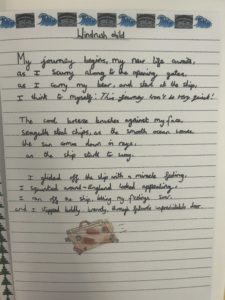 Windrush child
My journey begins, my new life awaits,
as I scurry along to the opening gates,
as I carry my bear, and stare at the ship,
I think to myself: This journey won't be very quick!
The cool breeze brushes against my face,
Seagulls steal chips, as the smooth ocean waves
the sun comes down in rays,
as the ship starts to sway.
I glided off the ship with a miracle feeling,
I squinted around - England looked appealing,
I ran off the ship, letting my feelings soar,
and I stepped boldly, bravely, through future's unpredictable door.